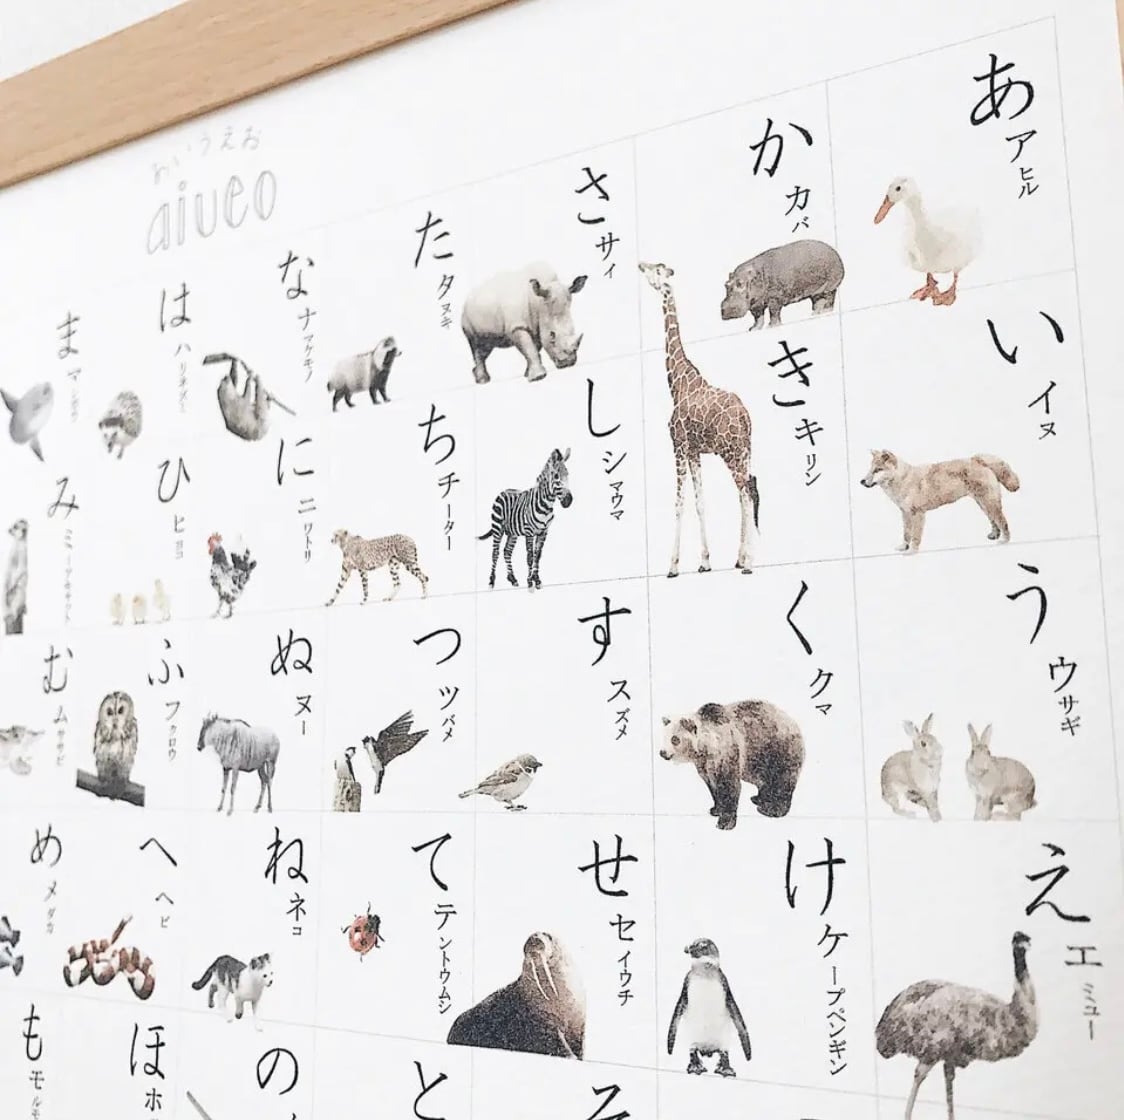 あいうえお
aiueo
あ
アヒル
い
イヌ
う
ウサギ
え
エミュー
か
カバ
き
キリン
く
クマ
け
ケープペンギン
さ
サイ
し
シマウマ
す
スズメ
せ
セイウチ
そ
た
タヌキ
ち
チーター
つ
ツバメ
て
テントウムシ
と
な
ナマケモノ
に
ニワトリ
ぬ
ヌー
ね
ネコ
の
は
ハリネズミ
ひ
ヒヨコ
ふ
フクロウ
へ
ヘビ
ほ
ホ
ま
マンボウ
み
ミーアキャット
む
ムササビ
め
メダカ
も
モルモ